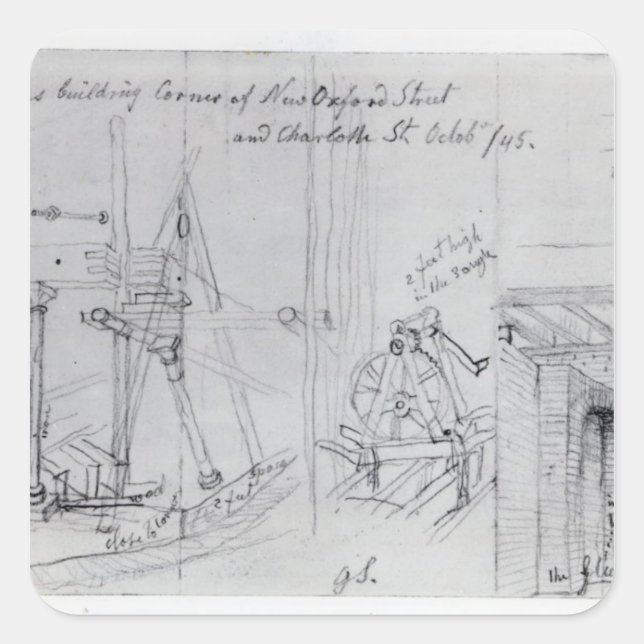 s building Corner of New Oxford Street
and Charlotte St. Octobr/45.
2 feet high
in the
iron
road
close to corner
2 feet space
gS.
the